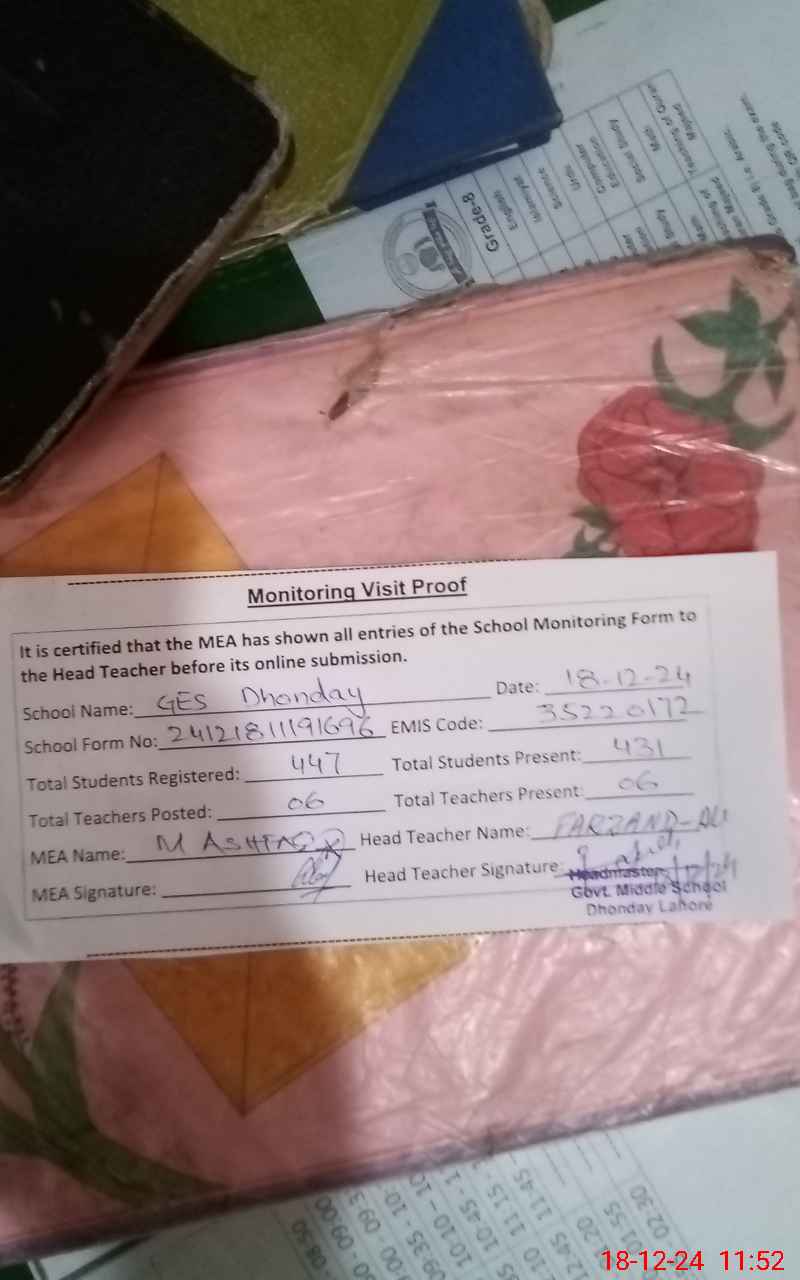 Grade-8
English
Islamiyat
Science
Urdu
Computer
Education
Social Study
Math
Teaching of Quran
Majeed
Monitoring Visit Proof
It is certified that the MEA has shown all entries of the School Monitoring Form to
the Head Teacher before its online submission.
School Name: GES Dhonday Date: 18-12-24
School Form No: 24121811191696 EMIS Code: 35220172
Total Students Registered: 447 Total Students Present: 431
Total Teachers Posted: 06 Total Teachers Present: 06
MEA Name: M ASHFAQ Head Teacher Name: FARZAND-ALI
MEA Signature: Head Teacher Signature:
Headmaster
Govt. Middle School
Dhonday Lahore
18-12-24 11:52